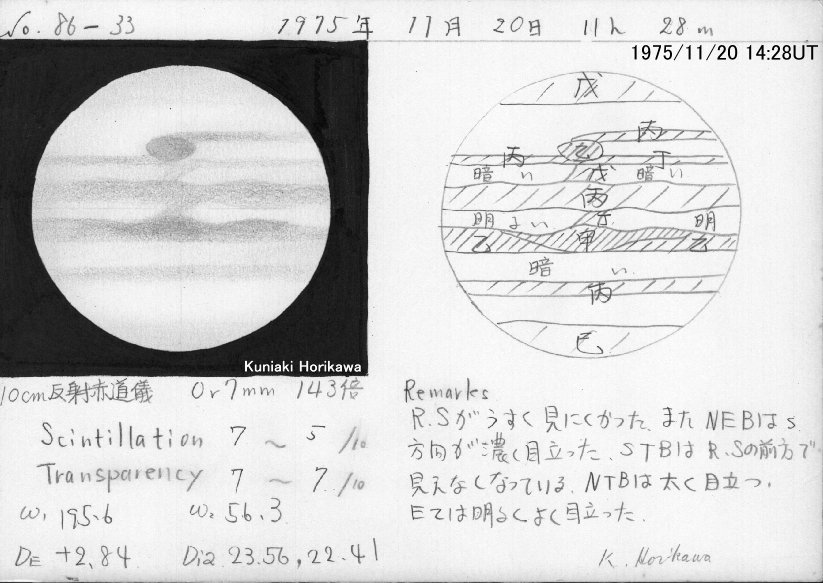 No. 86-33 1975年 11月 20日 11h 28m
1975/11/20 14:28UT
戊
丙
乙
丙 丁
暗い 戊 暗い
丙
明るい 丁 明
乙 甲 乙
暗い
丙
巳
Kuniaki Horikawa
10cm反射赤道儀 Or7mm 143倍
Scintillation 7 ~ 5 /10
Transparency 7 ~ 7 /10
ω₁ 195.6 ω₂ 56.3
DE +2.84 Dia 23.56, 22.41
Remarks
R.Sがうすく見にくかった、また NEBはs
方向が濃く目立った、STBは R.Sの前方で
見えなくなっている、NTBは太く目立つ、
EZは明るくよく目立った.
K. Horikawa